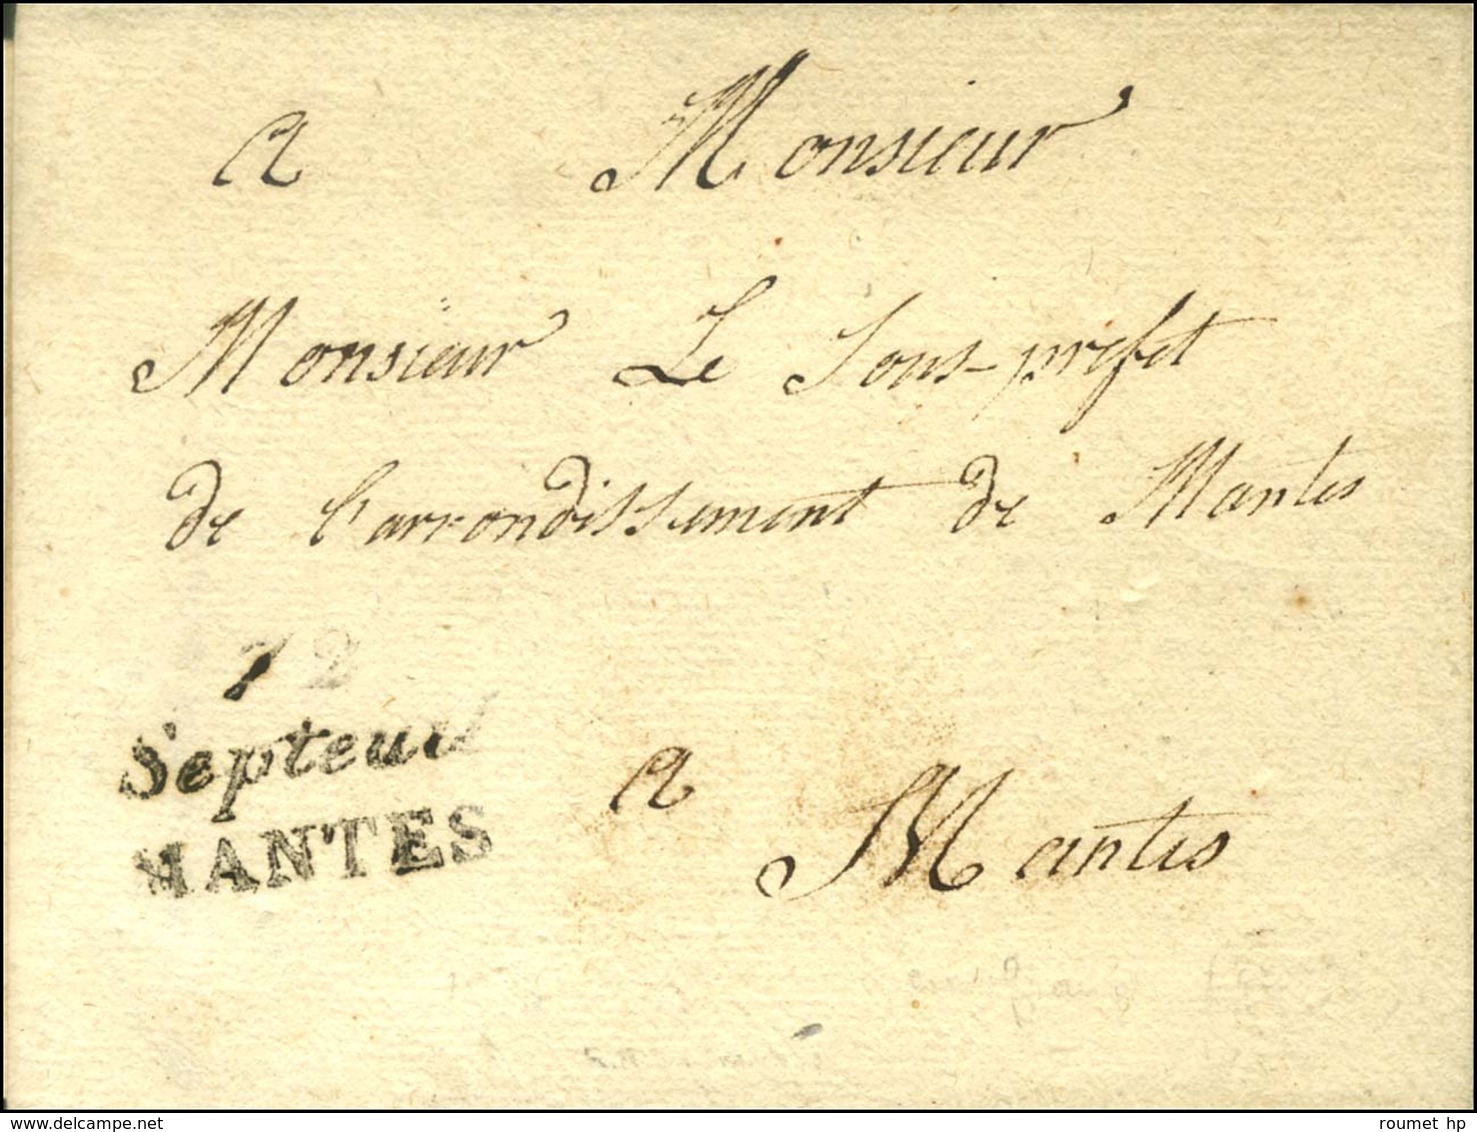 a Monsieur
Monsieur Le Sous-prefet
de l'arrondissement de Mantes
72
Septeuil
MANTES
a Mantes
roumet hp